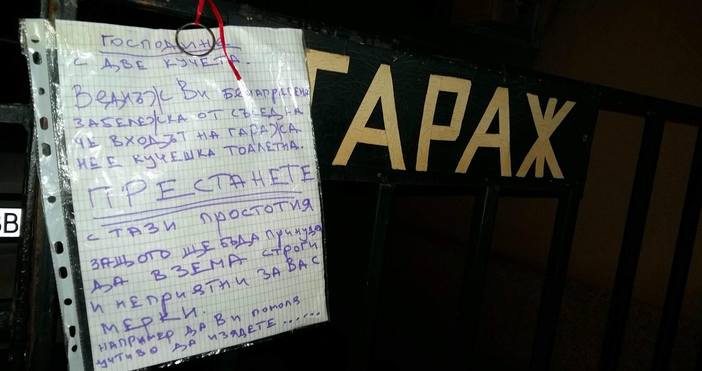 ГОСПОДИНЕ
С ДВЕ КУЧЕТА.
ВЕДНЪЖ ВИ БЕ НАПРАВЕНА
ЗАБЕЛЕЖКА ОТ СЪСЕДКА
ЧЕ ВХОДЪТ НА ГАРАЖА
НЕ Е КУЧЕШКА ТОАЛЕТНА.
ПРЕСТАНЕТЕ
С ТАЗИ ПРОСТОТИЯ
ЗАЩОТО ЩЕ БЪДА ПРИНУДЕН
ДА ВЗЕМА СТРОГИ
И НЕПРИЯТНИ ЗА ВАС
МЕРКИ.
НАПРИМЕР ДА ВИ ПОМОЛЯ
УЧТИВО ДА ИЗЯДЕТЕ ......
ГАРАЖ